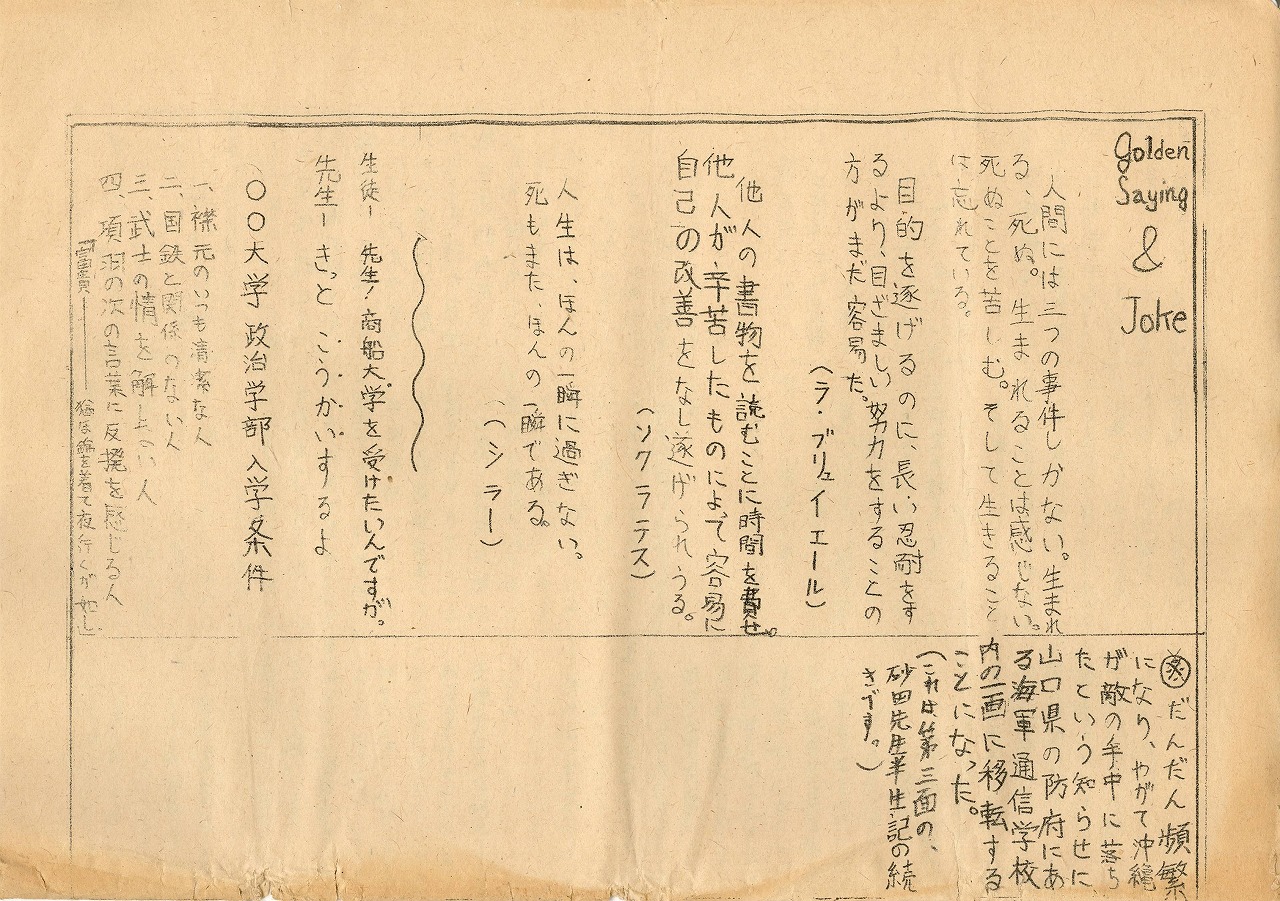 Golden
Saying
&
Joke
人間には三つの事件しかない。生まれ
る、死ぬ。生まれることは感じない。
死ぬことを苦しむ。そして生きること
は忘れている。
(ラ・ブリュイエール)
目的を遂げるのに、長い忍耐をす
るより、目ざましい努力をすることの
方がまだ容易だ。
他人の書物を読むことに時間を費せ。
他人が辛苦したものによって容易に
自己の改善をなし遂げられうる。
(ソクラテス)
人生は、ほんの一瞬に過ぎない。
死もまた、ほんの一瞬である。
(シラー)
生徒ー 先生!商船大学を受けたいんですが。
先生ー きっと こうかいするよ
○○大学 政治学部 入学条件
一、襟元のいつも清潔な人
二、国鉄と関係のない人
三、武士の情を解しない人
四、項羽の次の言葉に反撥を感じる人
「富貴――錦を着て夜行くが如し」
だんだん頻繁
になり、やがて沖縄
が敵の手中に落ち
たという知らせに
山口県の防府にあ
る海軍通信学校
内の一画に移転する
ことになった。
(これは第三面の、
砂田先生半生記の続
きです。)